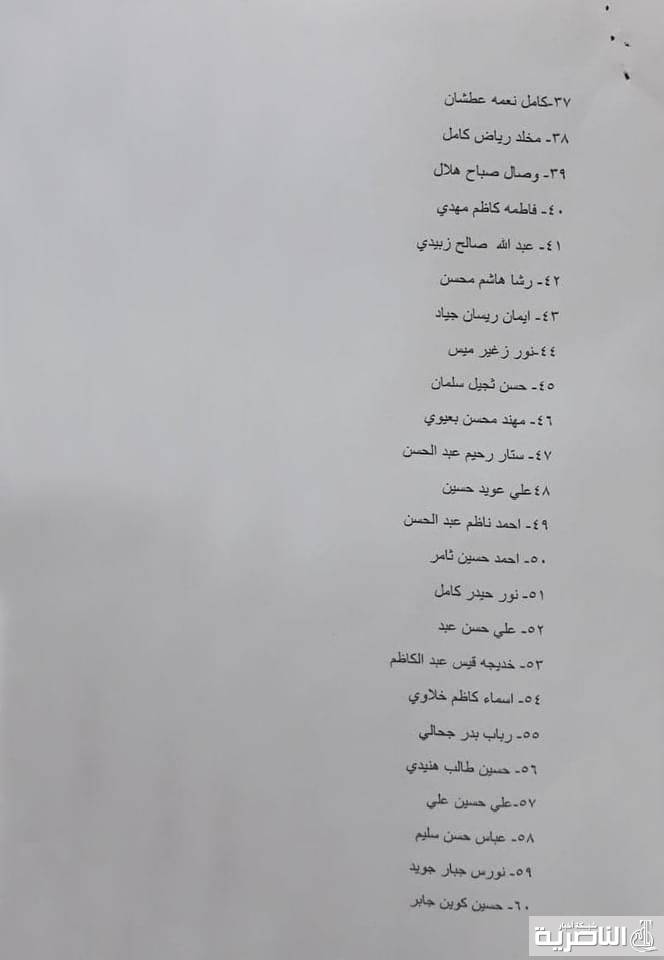 ٣٧-كامل نعمه عطشان
٣٨- مخلد رياض كامل
٣٩- وصال صباح هلال
٤٠- فاطمه كاظم مهدي
٤١- عبد الله صالح زبيدي
٤٢- رشا هاشم محسن
٤٣- ايمان ريسان جياد
٤٤-نور زغير ميس
٤٥- حسن ثجيل سلمان
٤٦- مهند محسن بعيوي
٤٧- ستار رحيم عبد الحسن
٤٨علي عويد حسين
٤٩- احمد ناظم عبد الحسن
٥٠- احمد حسين ثامر
٥١- نور حيدر كامل
٥٢- علي حسن عبد
٥٣- خديجه قيس عبد الكاظم
٥٤- اسماء كاظم خلاوي
٥٥- رباب بدر جحالي
٥٦- حسين طالب هنيدي
٥٧-علي حسين علي
٥٨- عباس حسن سليم
٥٩- نورس جبار جويد
٦٠- حسين كوين جابر
شبكة اخبار
الناصرية